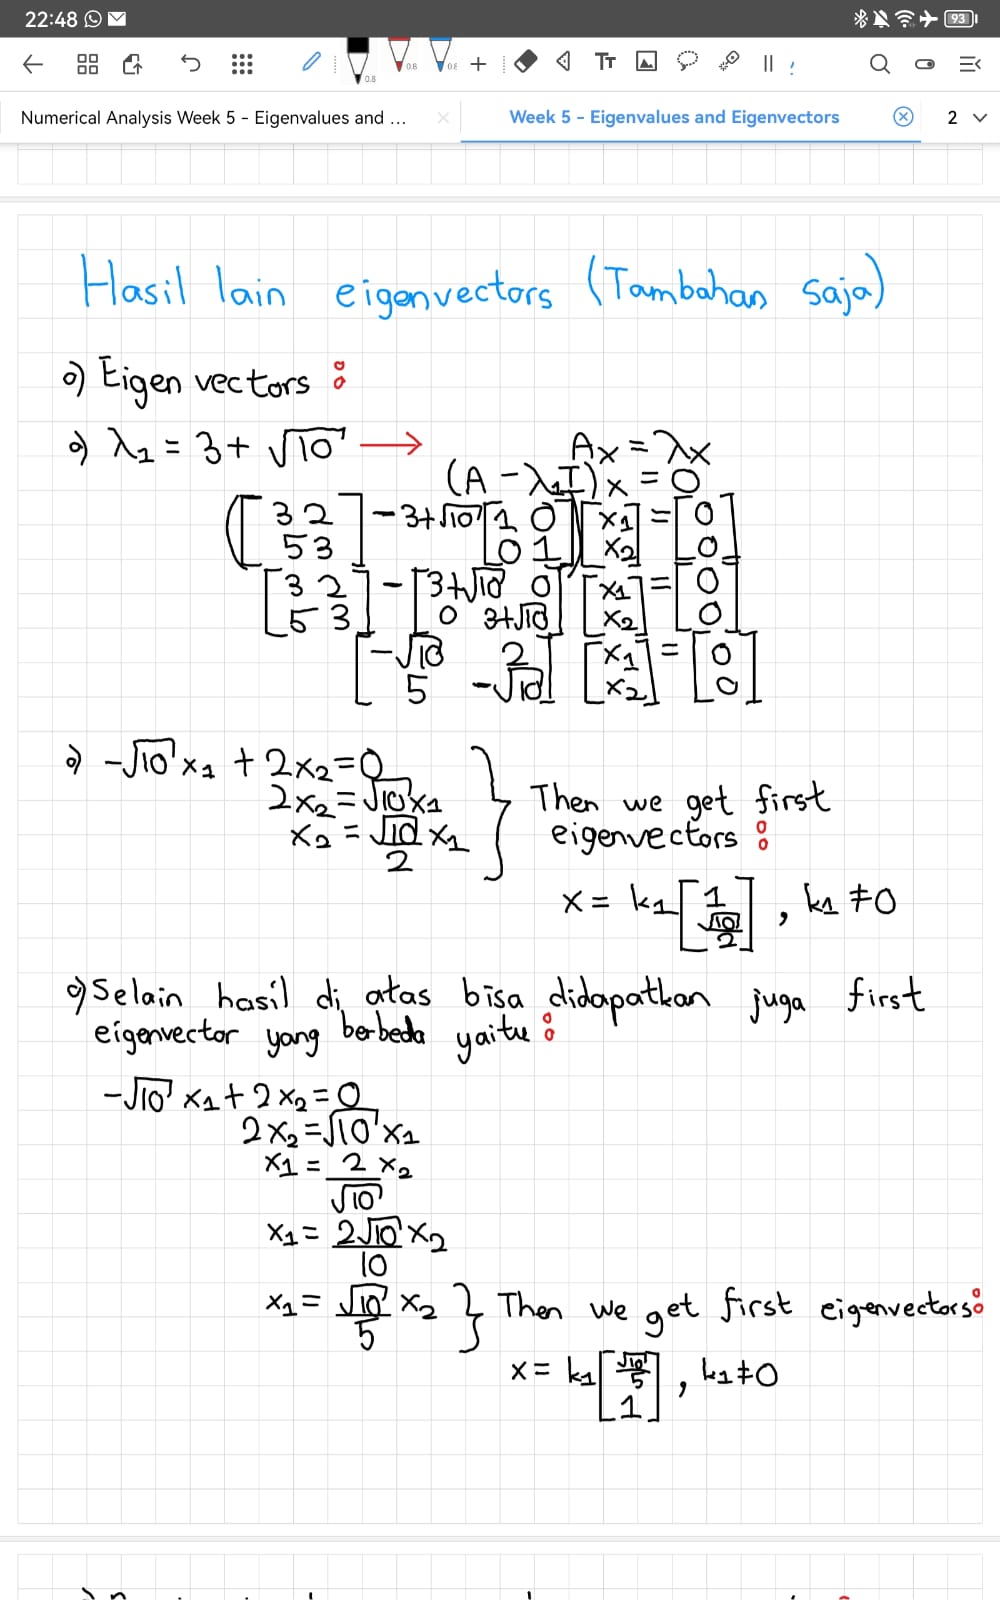 22:48 93
0.8 0.8 0.8
Numerical Analysis Week 5 - Eigenvalues and ... Week 5 - Eigenvalues and Eigenvectors 2
Hasil lain eigenvectors (Tambahan saja)
Eigen vectors :
λ1 = 3+√10 → Ax = λx
(A - λ1I)x = 0
([3 2; 5 3] - 3+√10 [1 0; 0 1]) [x1; x2] = [0; 0]
[3 2; 5 3] - [3+√10 0; 0 3+√10] [x1; x2] = [0; 0]
[-√10 2; 5 -√10] [x1; x2] = [0; 0]
-√10 x1 + 2x2 = 0
2x2 = √10 x1
x2 = √10/2 x1 } Then we get first
eigenvectors :
x = k1 [1; √10/2] , k1 ≠ 0
Selain hasil di atas bisa didapatkan juga first
eigenvector yang berbeda yaitu :
-√10 x1 + 2x2 = 0
2x2 = √10 x1
x1 = 2/√10 x2
x1 = 2√10/10 x2
x1 = √10/5 x2 } Then we get first eigenvectors:
x = k1 [√10/5; 1] , k1 ≠ 0